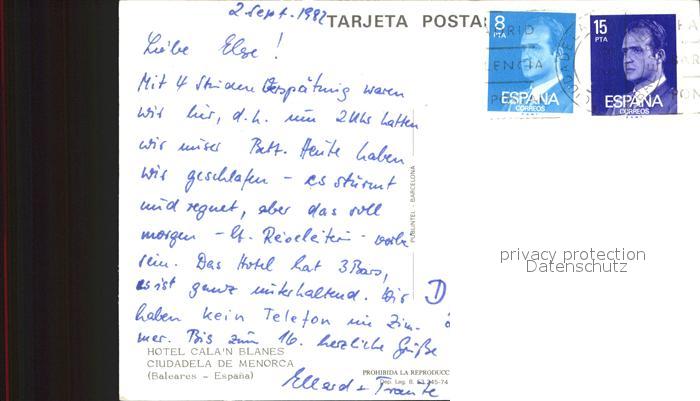 2. Sept. 1982
TARJETA POSTAL
8 PTA
ESPAÑA
CORREOS
15 PTA
ESPAÑA
CORREOS
Liebe Else!
Mit 4 Stunden Verspätung waren
wir hier, d.h. um 2 Uhr hatten
wir unser Bett. Heute haben
wir geschlafen - es stürmt
und regnet, aber das soll
morgen - lt. Reiseleiterin - vorbei
sein. Das Hotel hat 3 Bars,
es ist ganz unterhaltend. Wir
haben kein Telefon im Zim-
mer. Bis zum 16. herzliche Grüße
D
PUBLINTEL - BARCELONA
privacy protection
Datenschutz
HOTEL CALA'N BLANES
CIUDADELA DE MENORCA
(Baleares - España)
PROHIBIDA LA REPRODUCC
Dep. Leg. B.